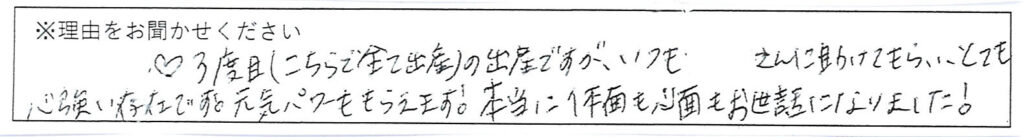 ※理由をお聞かせください
♡3度目(こちらで全て出産)の出産ですが、いつも さんに助けてもらい、とても
心強い存在です。元気パワーももらえます!本当に体面も心面もお世話になりました!